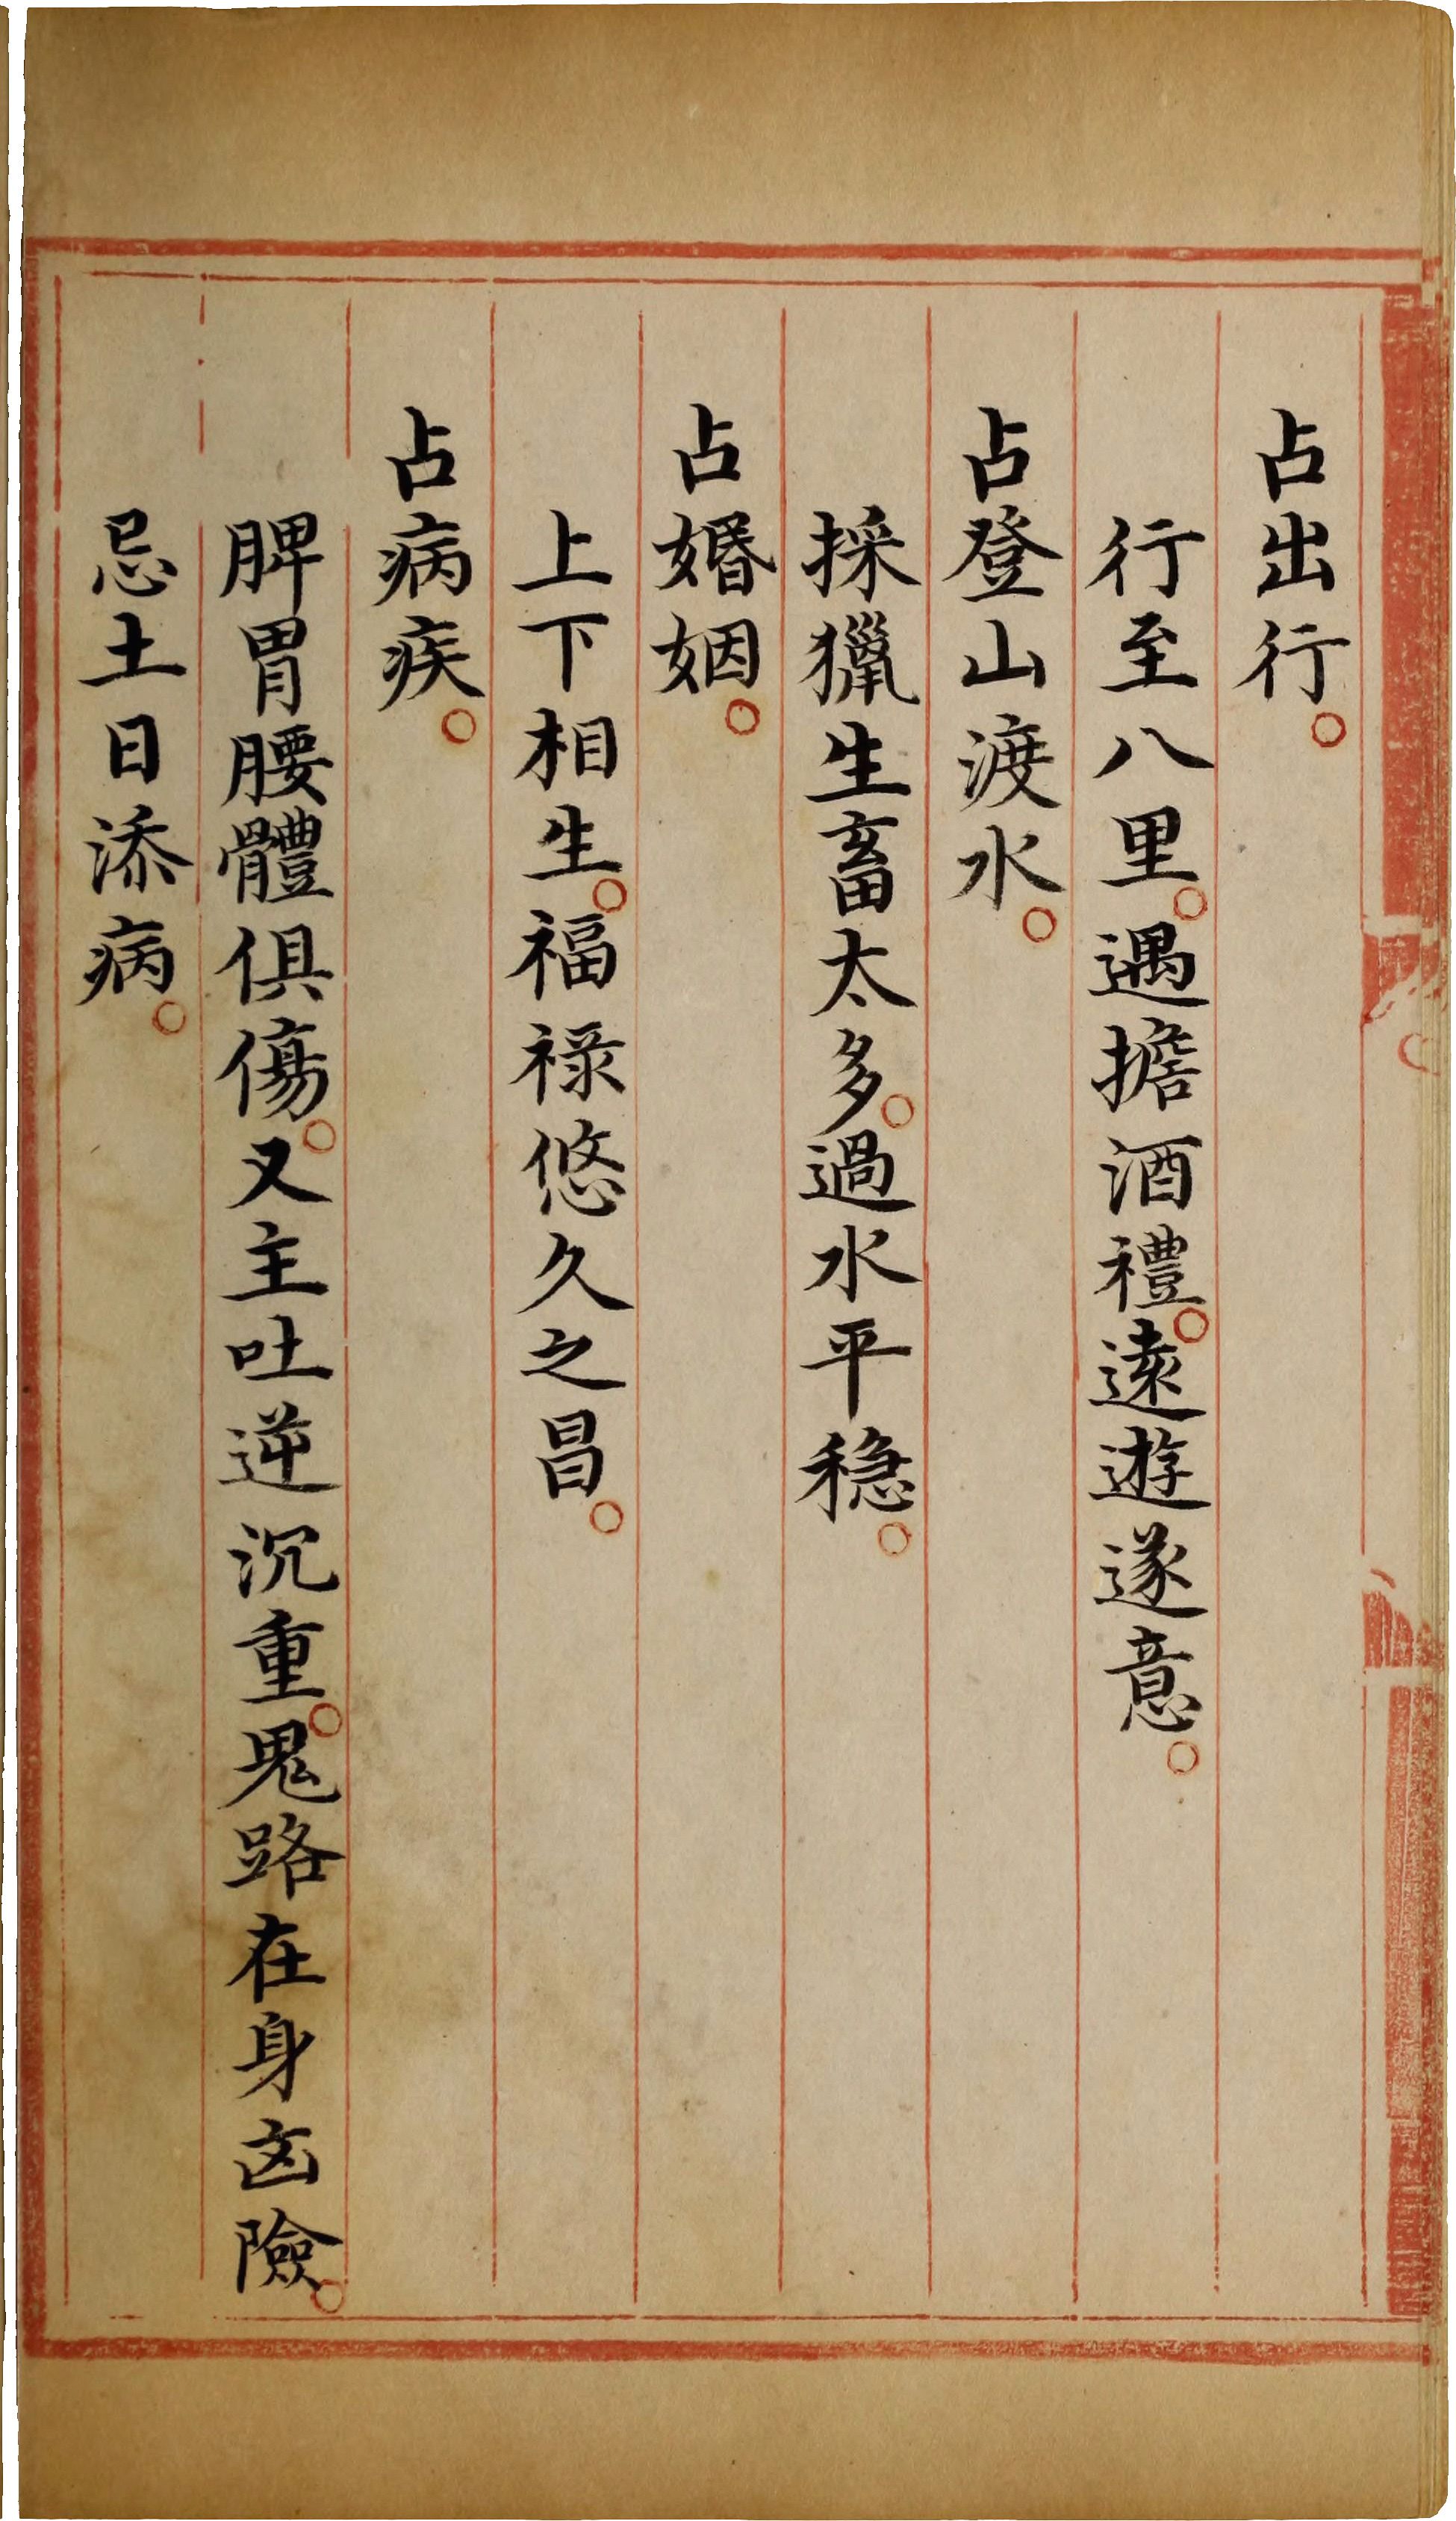 占出行。
行至八里。遇擔酒禮。遠遊遂意。
占登山渡水。
採獵生畜太多。過水平穏。
占婚姻。
上下相生。福祿悠久之昌。
占病疾。
脾胃腰體俱傷。又主吐逆沉重。鬼路在身凶險。
忌土日添病。